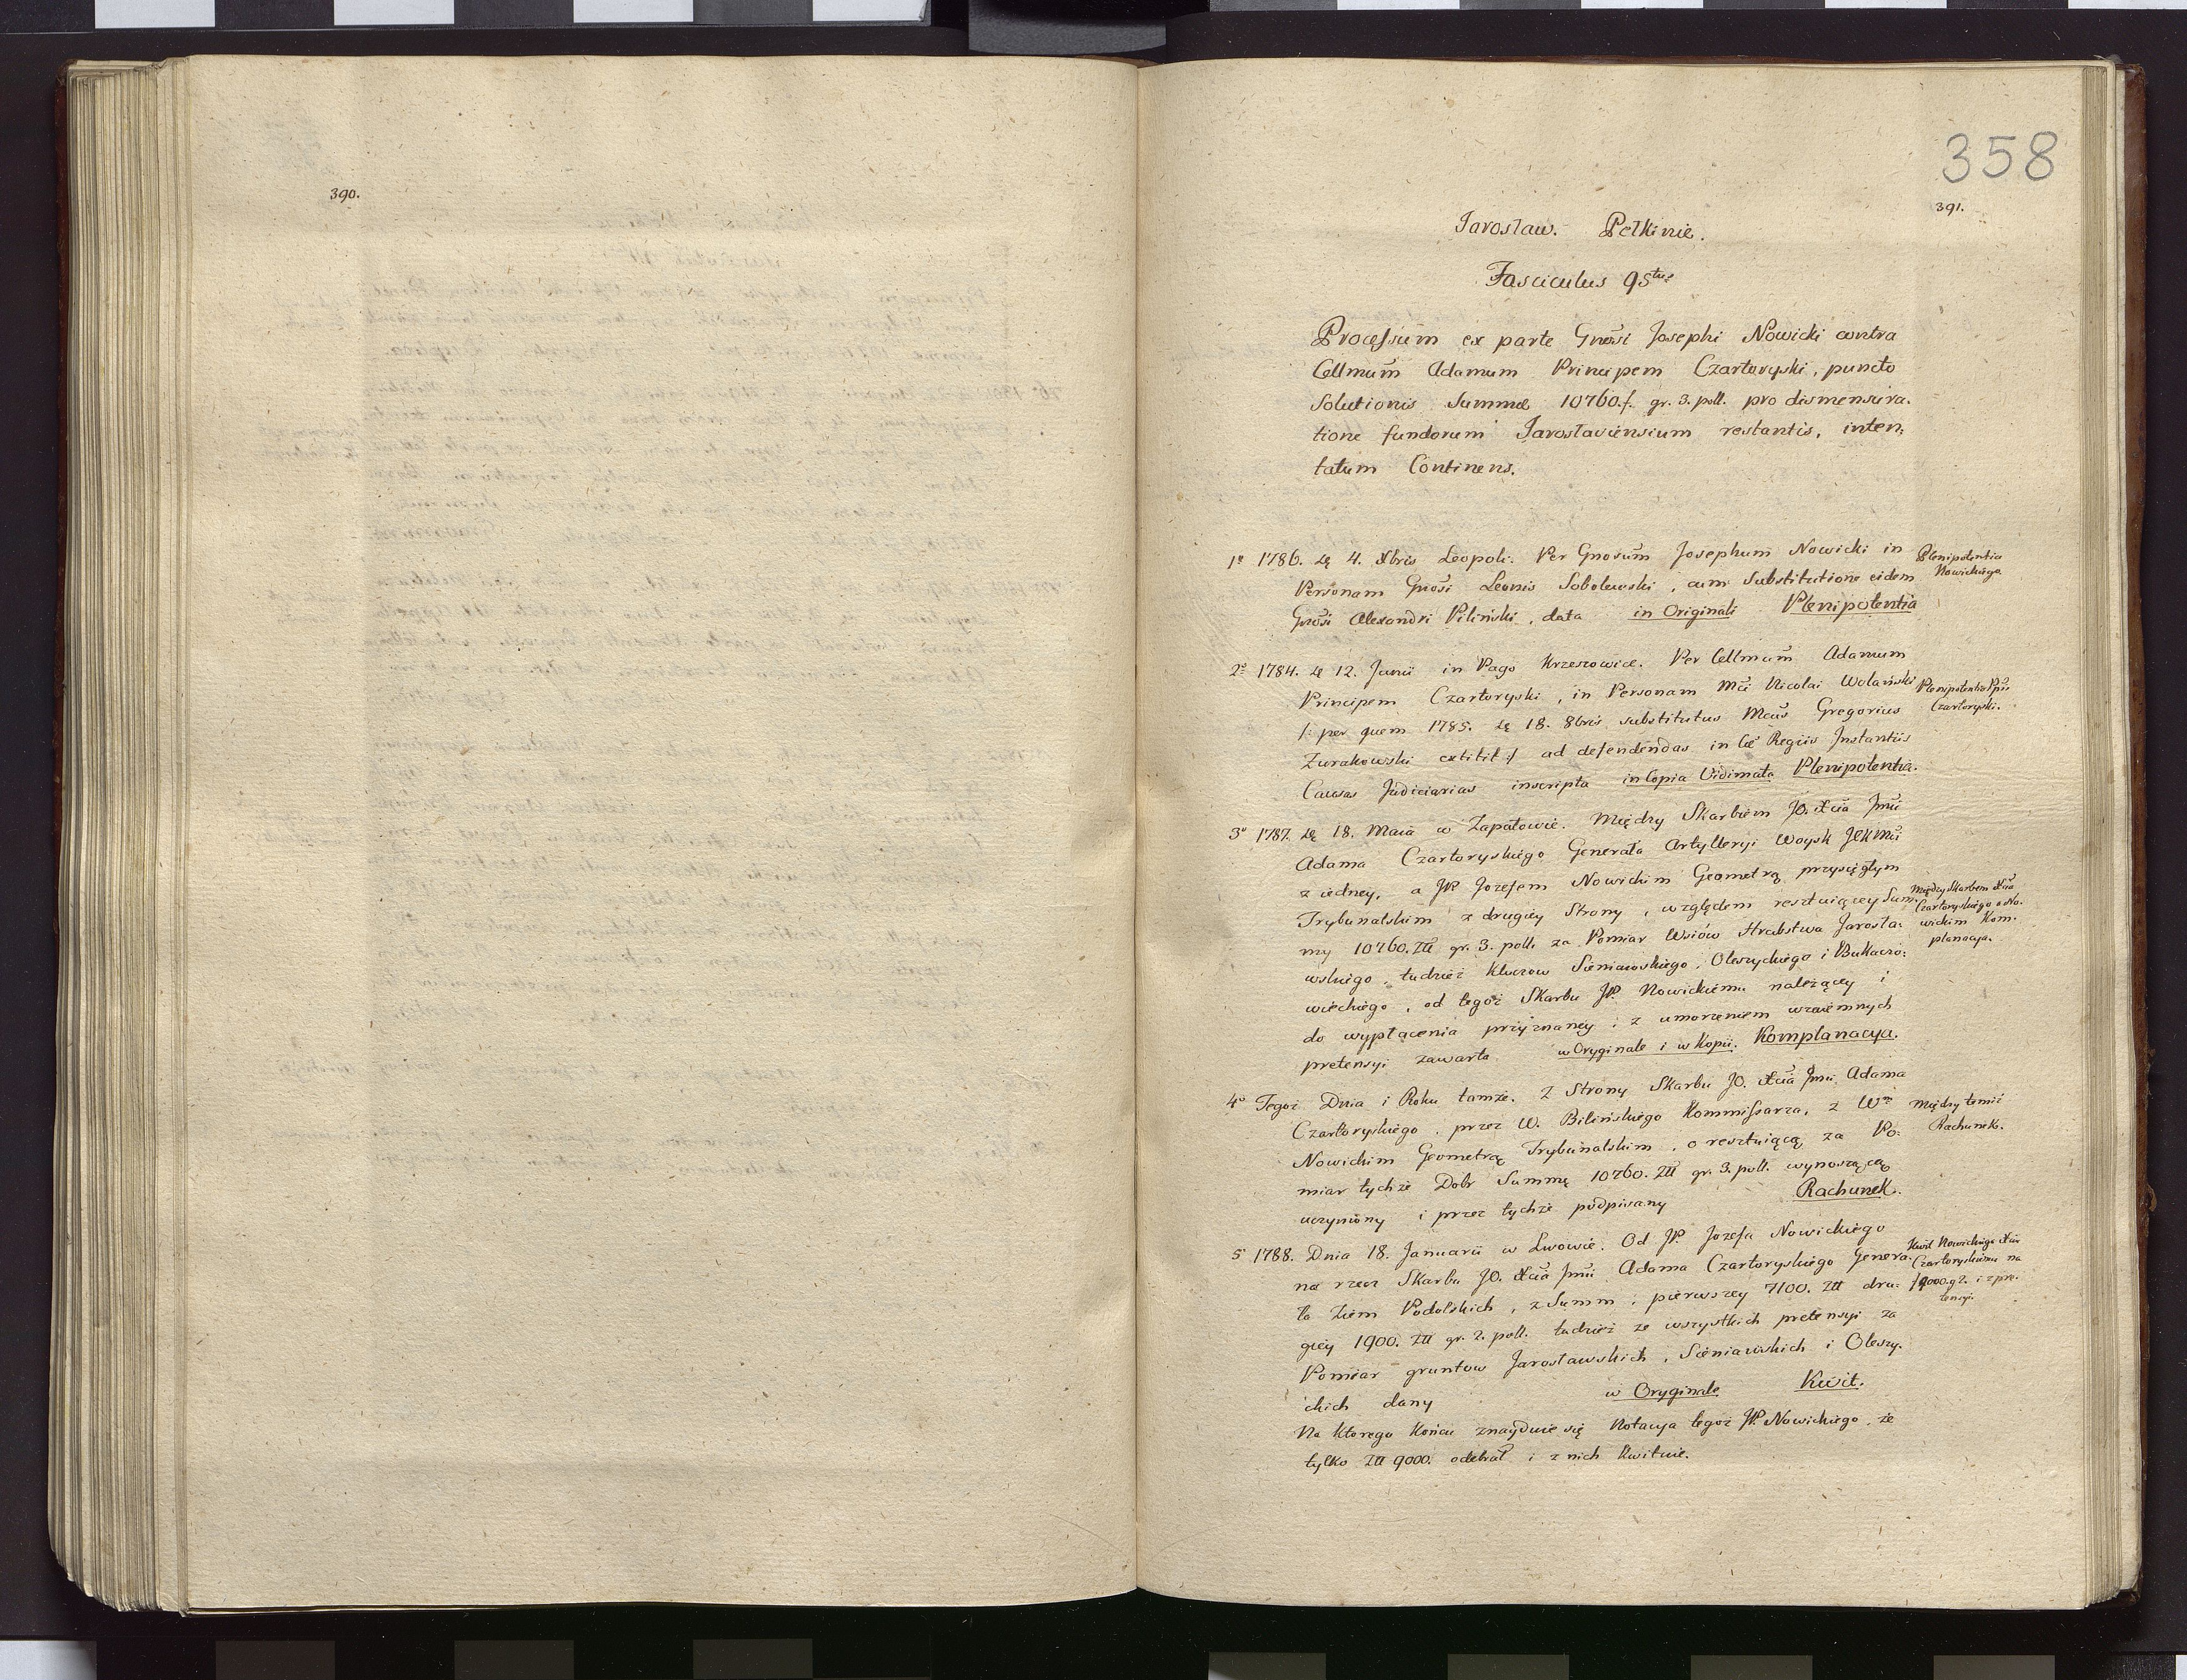 390.
358
391.
Jarosław. Pełkinie.
Fasciculus 95tus
Processum ex parte Gnosi Josephi Nowicki contra
Cellmum Adamum Principem Czartoryski, puncto
Solutionis Summae 10760.f. gr. 3. poll. pro dismensura-
tione fundorum Jarosłaviensium restantis, inten-
tatum Continens.
1o 1786. de 4. Xbris Leopoli. Per Gnosum Josephum Nowicki in
Personam Gnosi Leonis Sobolewski, cum Substitutione eidem
Gnosi Alexandri Piliński, data in Originali Plenipotentia
Plenipotentia
Nowickiego
2o 1784. de 12. Junii in Pago Krzeszowice. Per Cellmum Adamum
Principem Czartoryski, in Personam Mci Nicolai Wolański
/: per quem 1785. de 18. 8bris substitutus Mcus Gregorius
Zurakowski extitit :/ ad defendendas in Cae Regiis Instantiis
Causas Judiciarias inscripta in Copia Vidimata Plenipotentia.
Plenipotentia Ppis
Czartoryski.
3o 1787. de 18. Maia w Zapałowie. Między Skarbem JO. Xcia Jmci
Adama Czartoryskiego Generała Artylleryi Woysk JCKMci
z iedney, a JP. Jozefem Nowickim Geometrą przysięgłym
Trybunalskim z drugiey Strony, względem resztuiącey Sum-
my 10760. Złł gr. 3. poll. za Pomiar Wsiów Hrabstwa Jarosła-
wskiego, tudzież Kluczow Sieniawskiego, Oleszyckiego i Bukaczo-
wieckiego, od tegoż Skarbu JP. Nowickiemu należącey i
do wypłacenia przyznaney i z umorzeniem wzaiemnych
pretensyi zawarta w Oryginale i w Kopii. Komplanacya.
Między Skarbem Xcia
Czartoryskiego a No-
wickim Kom-
planacya.
4o Tegoż Dnia i Roku tamże. Z Strony Skarbu JO. Xcia Jmci Adama
Czartoryskiego, przez W. Bilińskiego Kommissarza, z Wm
Nowickim Geometrą Trybunalskim, o resztuiącą za Po-
miar tychże Dobr Summę 10760. Złł gr. 3. poll. wynoszącą
uczyniony i przez tychże podpisany Rachunek.
Między temiż
Rachunek.
5o 1788. Dnia 18. Januarii w Lwowie. Od JP. Jozefa Nowickiego
na rzecz Skarbu JO. Xcia Jmci Adama Czartoryskiego Genera-
ła Ziem Podolskich, z Summ, pierwszey 7100. Złł dru-
giey 1900. Złł gr. 2. poll. tudzież ze wszystkich pretensyi za
Pomiar gruntow Jarosławskich, Sieniawskich i Oleszy-
ckich dany w Oryginale Kwit.
Na ktorego Końcu znayduie się Notacya tegoż JP. Nowickiego, że
tylko Złł 9000. odebrał i z nich Kwituie.
Kwit Nowickiego Xciu
Czartoryskiemu na
9000. g 2. i z pre-
tensyi.